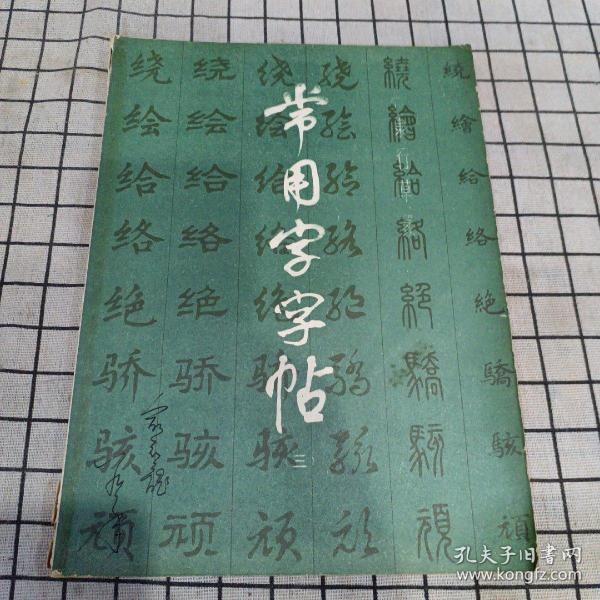 常用字字帖
三
绕 绕 绕 绕 繞 繞
绘 绘 绘 绘 繪 繪
给 给 给 给 給 給
络 络 络 络 絡 絡
绝 绝 绝 绝 絕 絶
骄 骄 骄 骄 驕 驕
骇 骇 骇 骇 駭 駭
顽 顽 顽 顽 頑 頑
孔夫子旧书网
www.kongfz.com